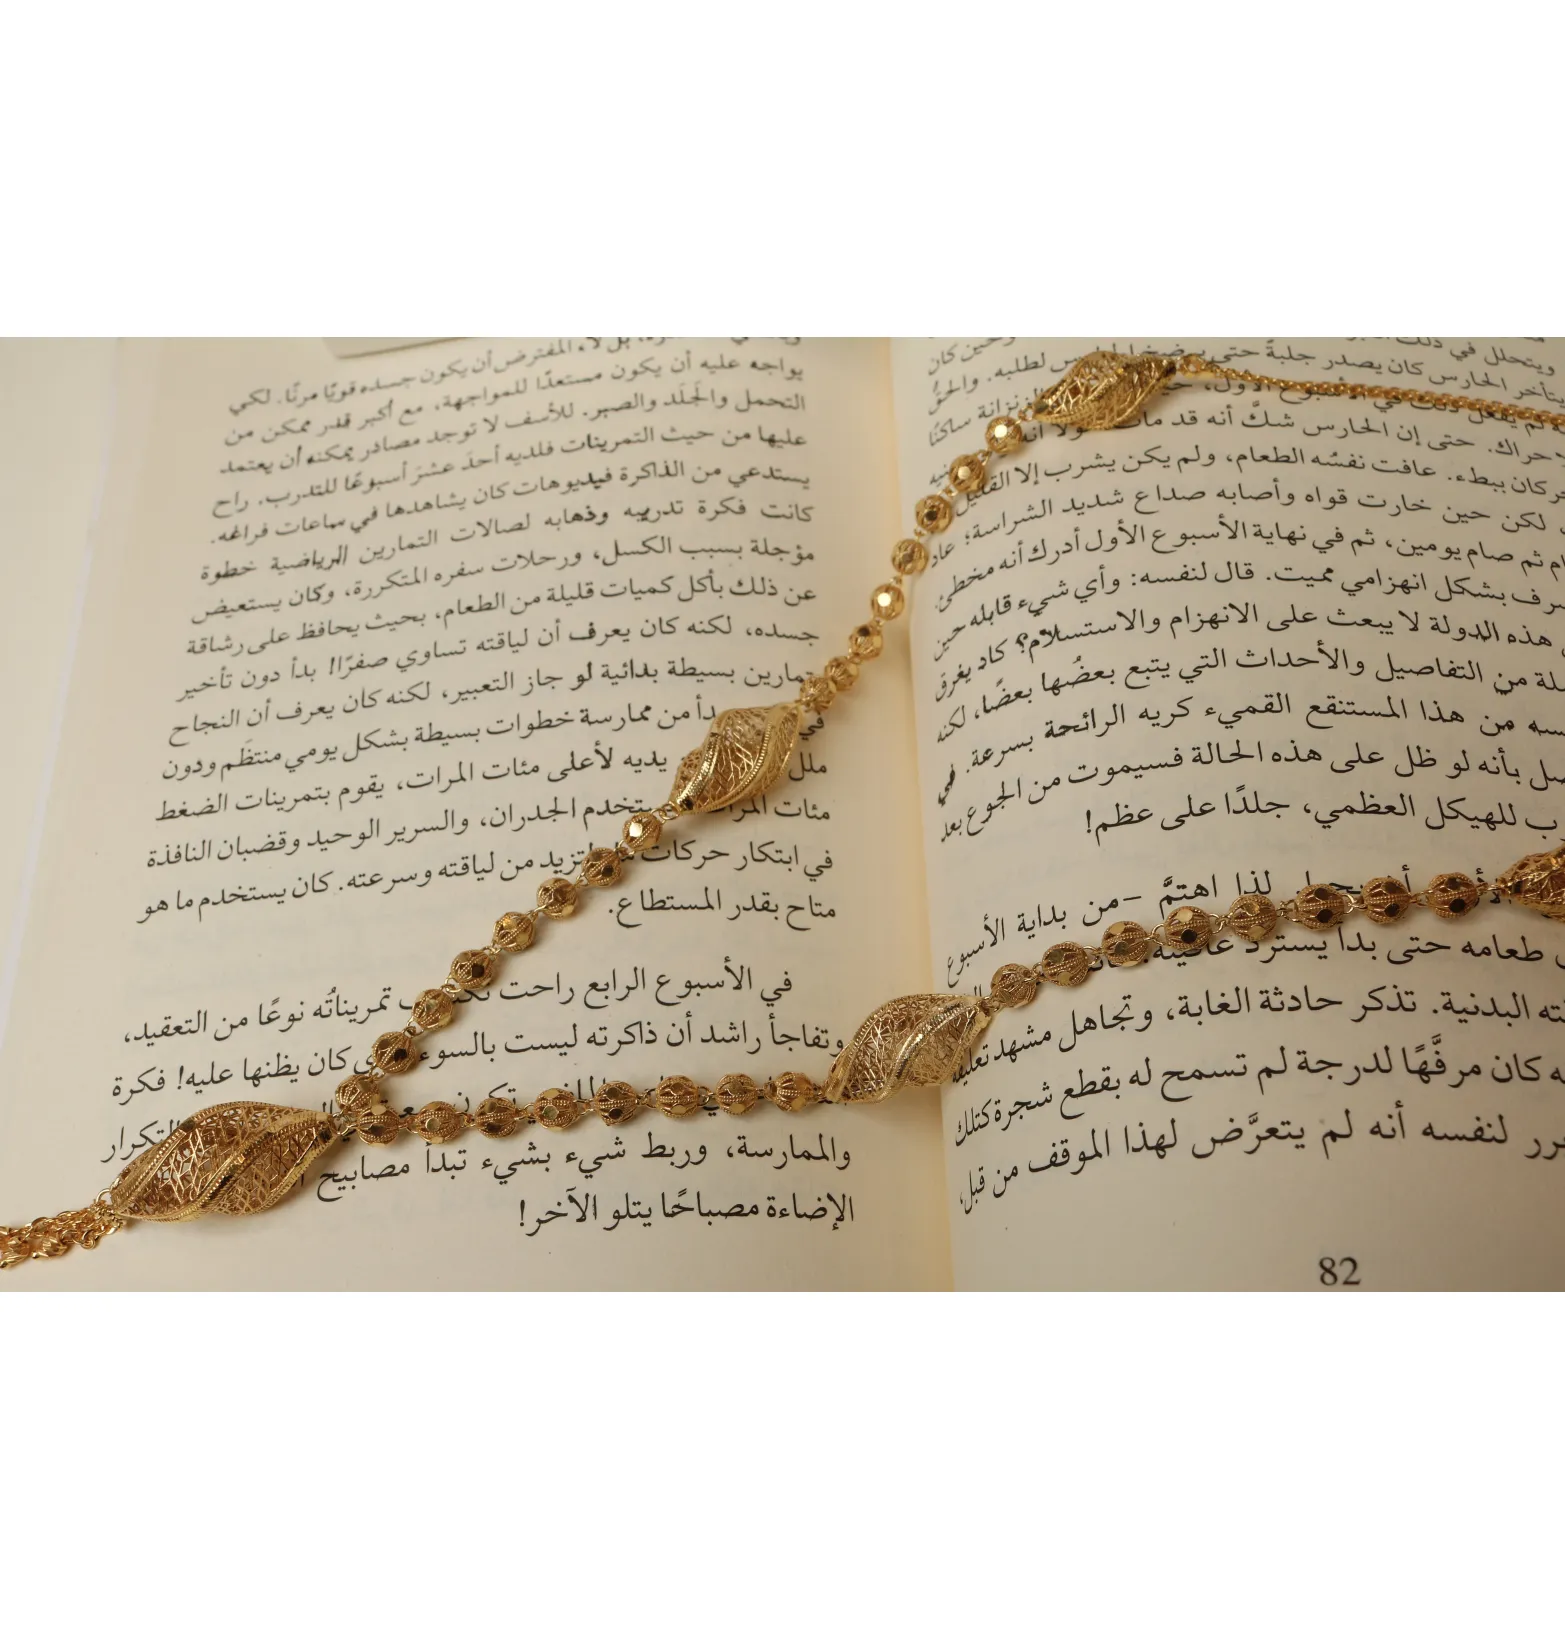 ويتحلل في ذلك
يتأخر الحارس كان يصدر جلبةً حتى يرضخ الحارس لطلبه. والحقُّ
لم يفعل ذلك في الأسبوع الأول، الزنزانة ساكنًا
حراك. حتى إن الحارس شكَّ أنه قد مات لولا أنه
كان ببطء. عافت نفسُه الطعام، ولم يكن يشرب إلا القليل
لكن حين خارت قواه وأصابه صداع شديد الشراسة؛ عاد
ثم صام يومين، ثم في نهاية الأسبوع الأول أدرك أنه مخطئ.
بشكل انهزامي مميت. قال لنفسه: وأي شيء قابله حين
هذه الدولة لا يبعث على الانهزام والاستسلام؟ كاد يغرق
من التفاصيل والأحداث التي يتبع بعضُها بعضًا، لكنه
من هذا المستنقع القميء كريه الرائحة بسرعة. في
بأنه لو ظل على هذه الحالة فسيموت من الجوع بعد
للهيكل العظمي، جلدًا على عظم!
لذا اهتمَّ –من بداية الأسبوع
طعامه حتى بدأ يسترد عافيته.
البدنية. تذكر حادثة الغابة، وتجاهل مشهد تعليقه
كان مرفَّهًا لدرجة لم تسمح له بقطع شجرة كتلك
لنفسه أنه لم يتعرَّض لهذا الموقف من قبل،
82
بل لا، المفترض أن يكون جسده قويًا مرنًا. لكي
يواجه عليه أن يكون مستعدًا للمواجهة، مع أكبر قدر ممكن من
التحمل والجَلَد والصبر. للأسف لا توجد مصادر يمكنه أن يعتمد
عليها من حيث التمرينات فلديه أحدَ عشرَ أسبوعًا للتدرب. راح
يستدعي من الذاكرة فيديوهات كان يشاهدها في ساعات فراغه.
كانت فكرة تدريبه وذهابه لصالات التمارين الرياضية خطوة
مؤجلة بسبب الكسل، ورحلات سفره المتكررة، وكان يستعيض
عن ذلك بأكل كميات قليلة من الطعام، بحيث يحافظ على رشاقة
جسده، لكنه كان يعرف أن لياقته تساوي صفرًا! بدأ دون تأخير
تمارين بسيطة بدائية لو جاز التعبير، لكنه كان يعرف أن النجاح
في من ممارسة خطوات بسيطة بشكل يومي منتظَم ودون
ملل يديه لأعلى مئات المرات، يقوم بتمرينات الضغط
مئات المرات يستخدم الجدران، والسرير الوحيد وقضبان النافذة
في ابتكار حركات لتزيد من لياقته وسرعته. كان يستخدم ما هو
متاح بقدر المستطاع.
في الأسبوع الرابع راحت تمريناتُه نوعًا من التعقيد،
وتفاجأ راشد أن ذاكرته ليست بالسوء كان يظنها عليه! فكرة
تكون التكرار
والممارسة، وربط شيء بشيء تبدأ مصابيح
الإضاءة مصباحًا يتلو الآخر!